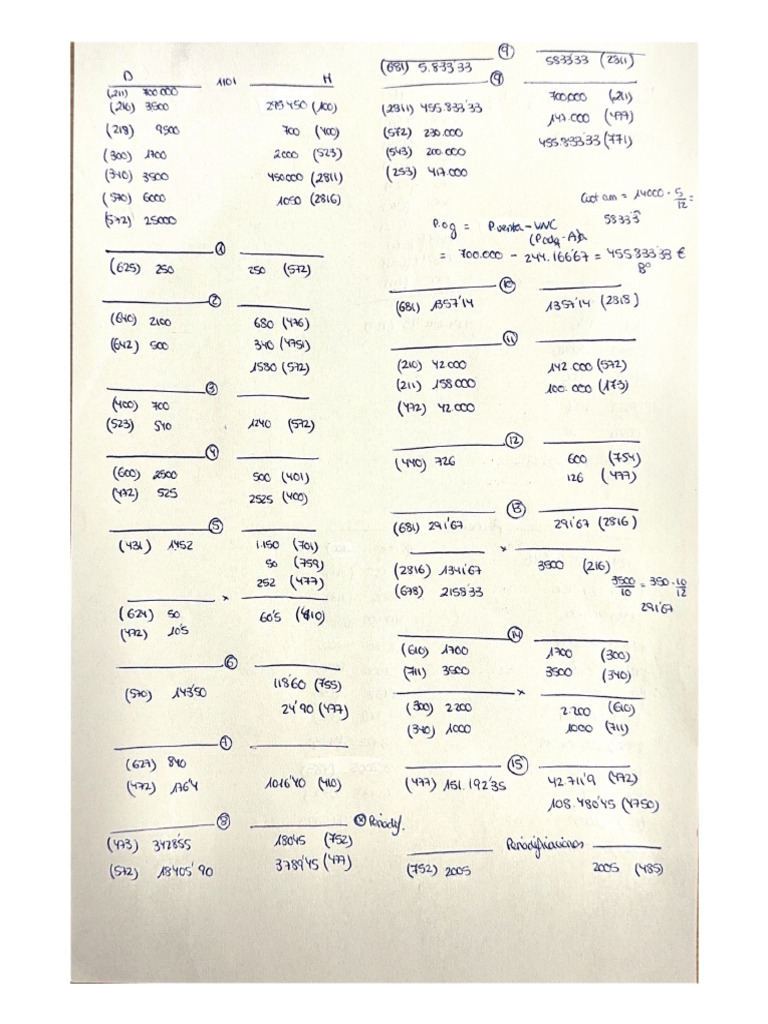 D 1101 H
(211) 700.000
(216) 3500 295450 (100)
(218) 9500 700 (400)
(300) 1700 2000 (523)
(340) 3500 450000 (2811)
(570) 6000 1050 (2816)
(572) 25000
1
(625) 250 250 (572)
2
(640) 2100 680 (476)
(642) 500 340 (4751)
1580 (572)
3
(400) 700
(523) 540 1240 (572)
4
(600) 2500 500 (401)
(472) 525 2525 (400)
5
(431) 1452 1.150 (701)
50 (759)
252 (477)
x
(624) 50 60'5 (410)
(472) 10'5
6
(570) 143'50 118'60 (755)
24'90 (477)
7
(627) 840
(472) 176'4 1016'40 (410)
8 Periodif.
(473) 3428'55 18045 (752)
(572) 18405'90 3789'45 (477)
9
(681) 5.833'33 5833'33 (2811)
9
(2811) 455.833'33 700.000 (211)
(572) 230.000 147.000 (477)
(543) 200.000 455.833'33 (771)
(253) 417.000
Cuot am = 14000 · 5/12 =
5833'3
P.og = P.venta - VNC
(Padq - AA)
= 700.000 - 244.166'67 = 455833'33 €
Bº
10
(681) 1357'14 1357'14 (2818)
11
(210) 42.000 142.000 (572)
(211) 158.000 100.000 (173)
(472) 42.000
12
(440) 726 600 (754)
126 (477)
13
(681) 291'67 291'67 (2816)
x
(2816) 1341'67 3500 (216)
(678) 2158'33
3500/10 = 350 · 10/12
291'67
14
(610) 1700 1700 (300)
(711) 3500 3500 (340)
x
(300) 2200 2.200 (610)
(340) 1000 1000 (711)
15
(477) 151.192'35 42.711'9 (472)
108.480'45 (4750)
Periodificaciones
(752) 2005 2005 (485)